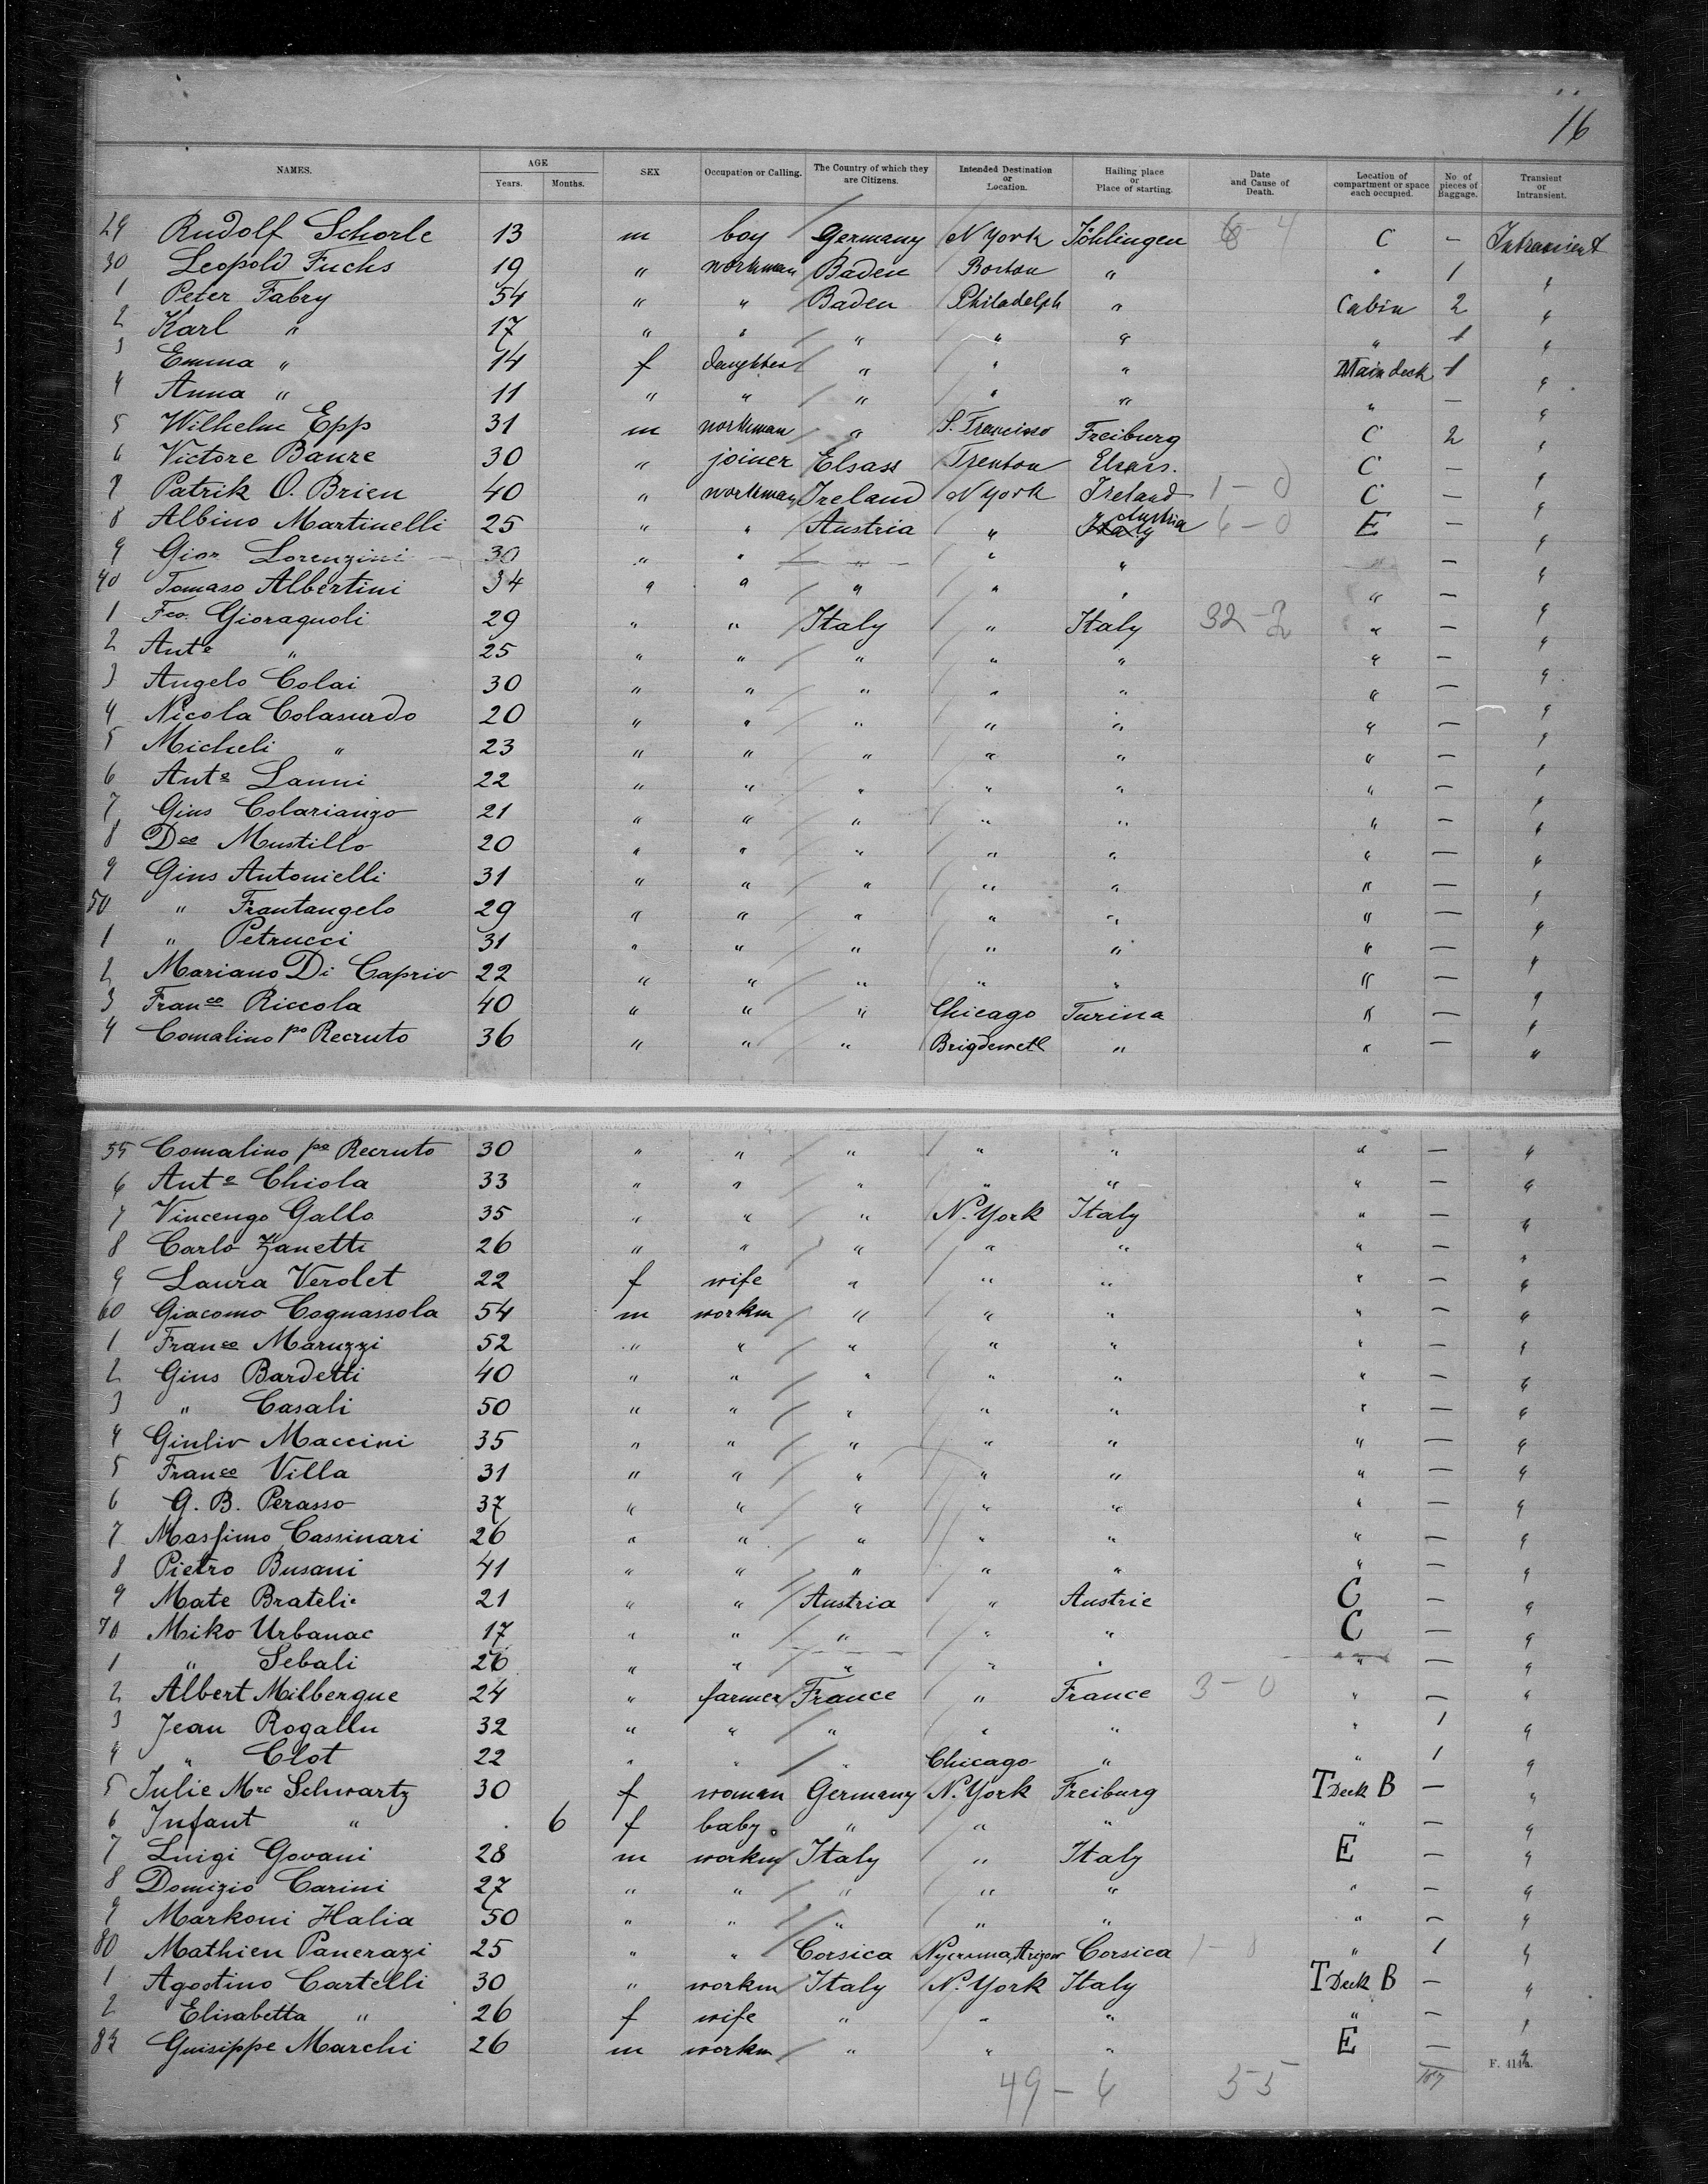 16
NAMES. AGE Years. Months. SEX Occupation or Calling. The Country of which they are Citizens. Intended Destination or Location. Hailing place or Place of starting. Date and Cause of Death. Location of compartment or space each occupied. No. of pieces of Baggage. Transient or Intransient.
29 Rudolf Schorle 13 m boy Germany N York Jöhlingen C — Intransient
30 Leopold Fuchs 19 " workman Baden Boston " " 1 "
1 Peter Fabry 54 " " Baden Philadelph " Cabin 2 "
2 Karl " 17 " " " " " " 1 "
3 Emma " 14 f daughter " " " Main deck 1 "
4 Anna " 11 " " " " " " — "
5 Wilhelm Epp 31 m workman " S. Francisco Freiburg C 2 "
6 Victore Banre 30 " joiner Elsass Trenton Elsass. C — "
7 Patrik O. Brien 40 " workman Ireland N York Ireland 1 - 0 C — "
8 Albino Martinelli 25 " " Austria " Italy Austria 4 - 0 E — "
9 Gior Lorenzini 30 " " " " " " — "
40 Tomaso Albertini 34 " " " " " " — "
1 Fco. Gioragnoli 29 " " Italy " Italy " — "
2 Ant.e " 25 " " " " " " — "
3 Angelo Colai 30 " " " " " " — "
4 Nicola Colasurdo 20 " " " " " " — "
5 Micheli " 23 " " " " " " — "
6 Ant.e Lanni 22 " " " " " " — "
7 Gius Colarianzo 21 " " " " " " — "
8 Dco Mustillo 20 " " " " " " — "
9 Gius Antonielli 31 " " " " " " — "
50 " Frantangelo 29 " " " " " " — "
1 " Petrucci 31 " " " " " " — "
2 Mariano Di Caprio 22 " " " " " " — "
3 Franco Riccola 40 " " " Chicago Turina " — "
4 Comalino po Recruto 36 " " " Brigdewell " " — "
55 Comalino po Recruto 30 " " " " " " — "
6 Ant.e Chiola 33 " " " " " " — "
7 Vincengo Gallo 35 " " " N. York Italy " — "
8 Carlo Zanetti 26 " " " " " " — "
9 Laura Verolet 22 f wife " " " " — "
60 Giacomo Cognassola 54 m workm " " " " — "
1 Franco Maruzzi 52 " " " " " " — "
2 Gius Bardetti 40 " " " " " " — "
3 " Casali 50 " " " " " " — "
4 Giulio Maccini 35 " " " " " " — "
5 Franco Villa 31 " " " " " " — "
6 G. B. Perasso 37 " " " " " " — "
7 Massimo Cassinari 26 " " " " " " — "
8 Pietro Busani 41 " " " " " " — "
9 Mate Bratelie 21 " " Austria " Austrie C — "
70 Miko Urbanac 17 " " " " " C — "
1 " Sebali 26 " " " " " " — "
2 Albert Milbergue 24 " farmer France " France 3 - 0 " — "
3 Jean Rogallu 32 " " " " " " 1 "
4 " Clot 22 " " " Chicago " " 1 "
5 Julie Mrc Schwartz 30 f woman Germany N. York Freiburg T Deck B — "
6 Infant " 6 f baby " " " " — "
7 Luigi Govani 28 m workm Italy " Italy E — "
8 Domizio Carini 27 " " " " " " — "
9 Markoni Halia 50 " " " " " " — "
80 Mathieu Panerazi 25 " " Corsica Corsica " 1 "
1 Agostino Cartelli 30 " workm Italy N. York Italy T Deck B — "
2 Elisabetta " 26 f wife " " " " — "
83 Guisippe Marchi 26 m workm " " " E — "
49 - 6 55 F. 414